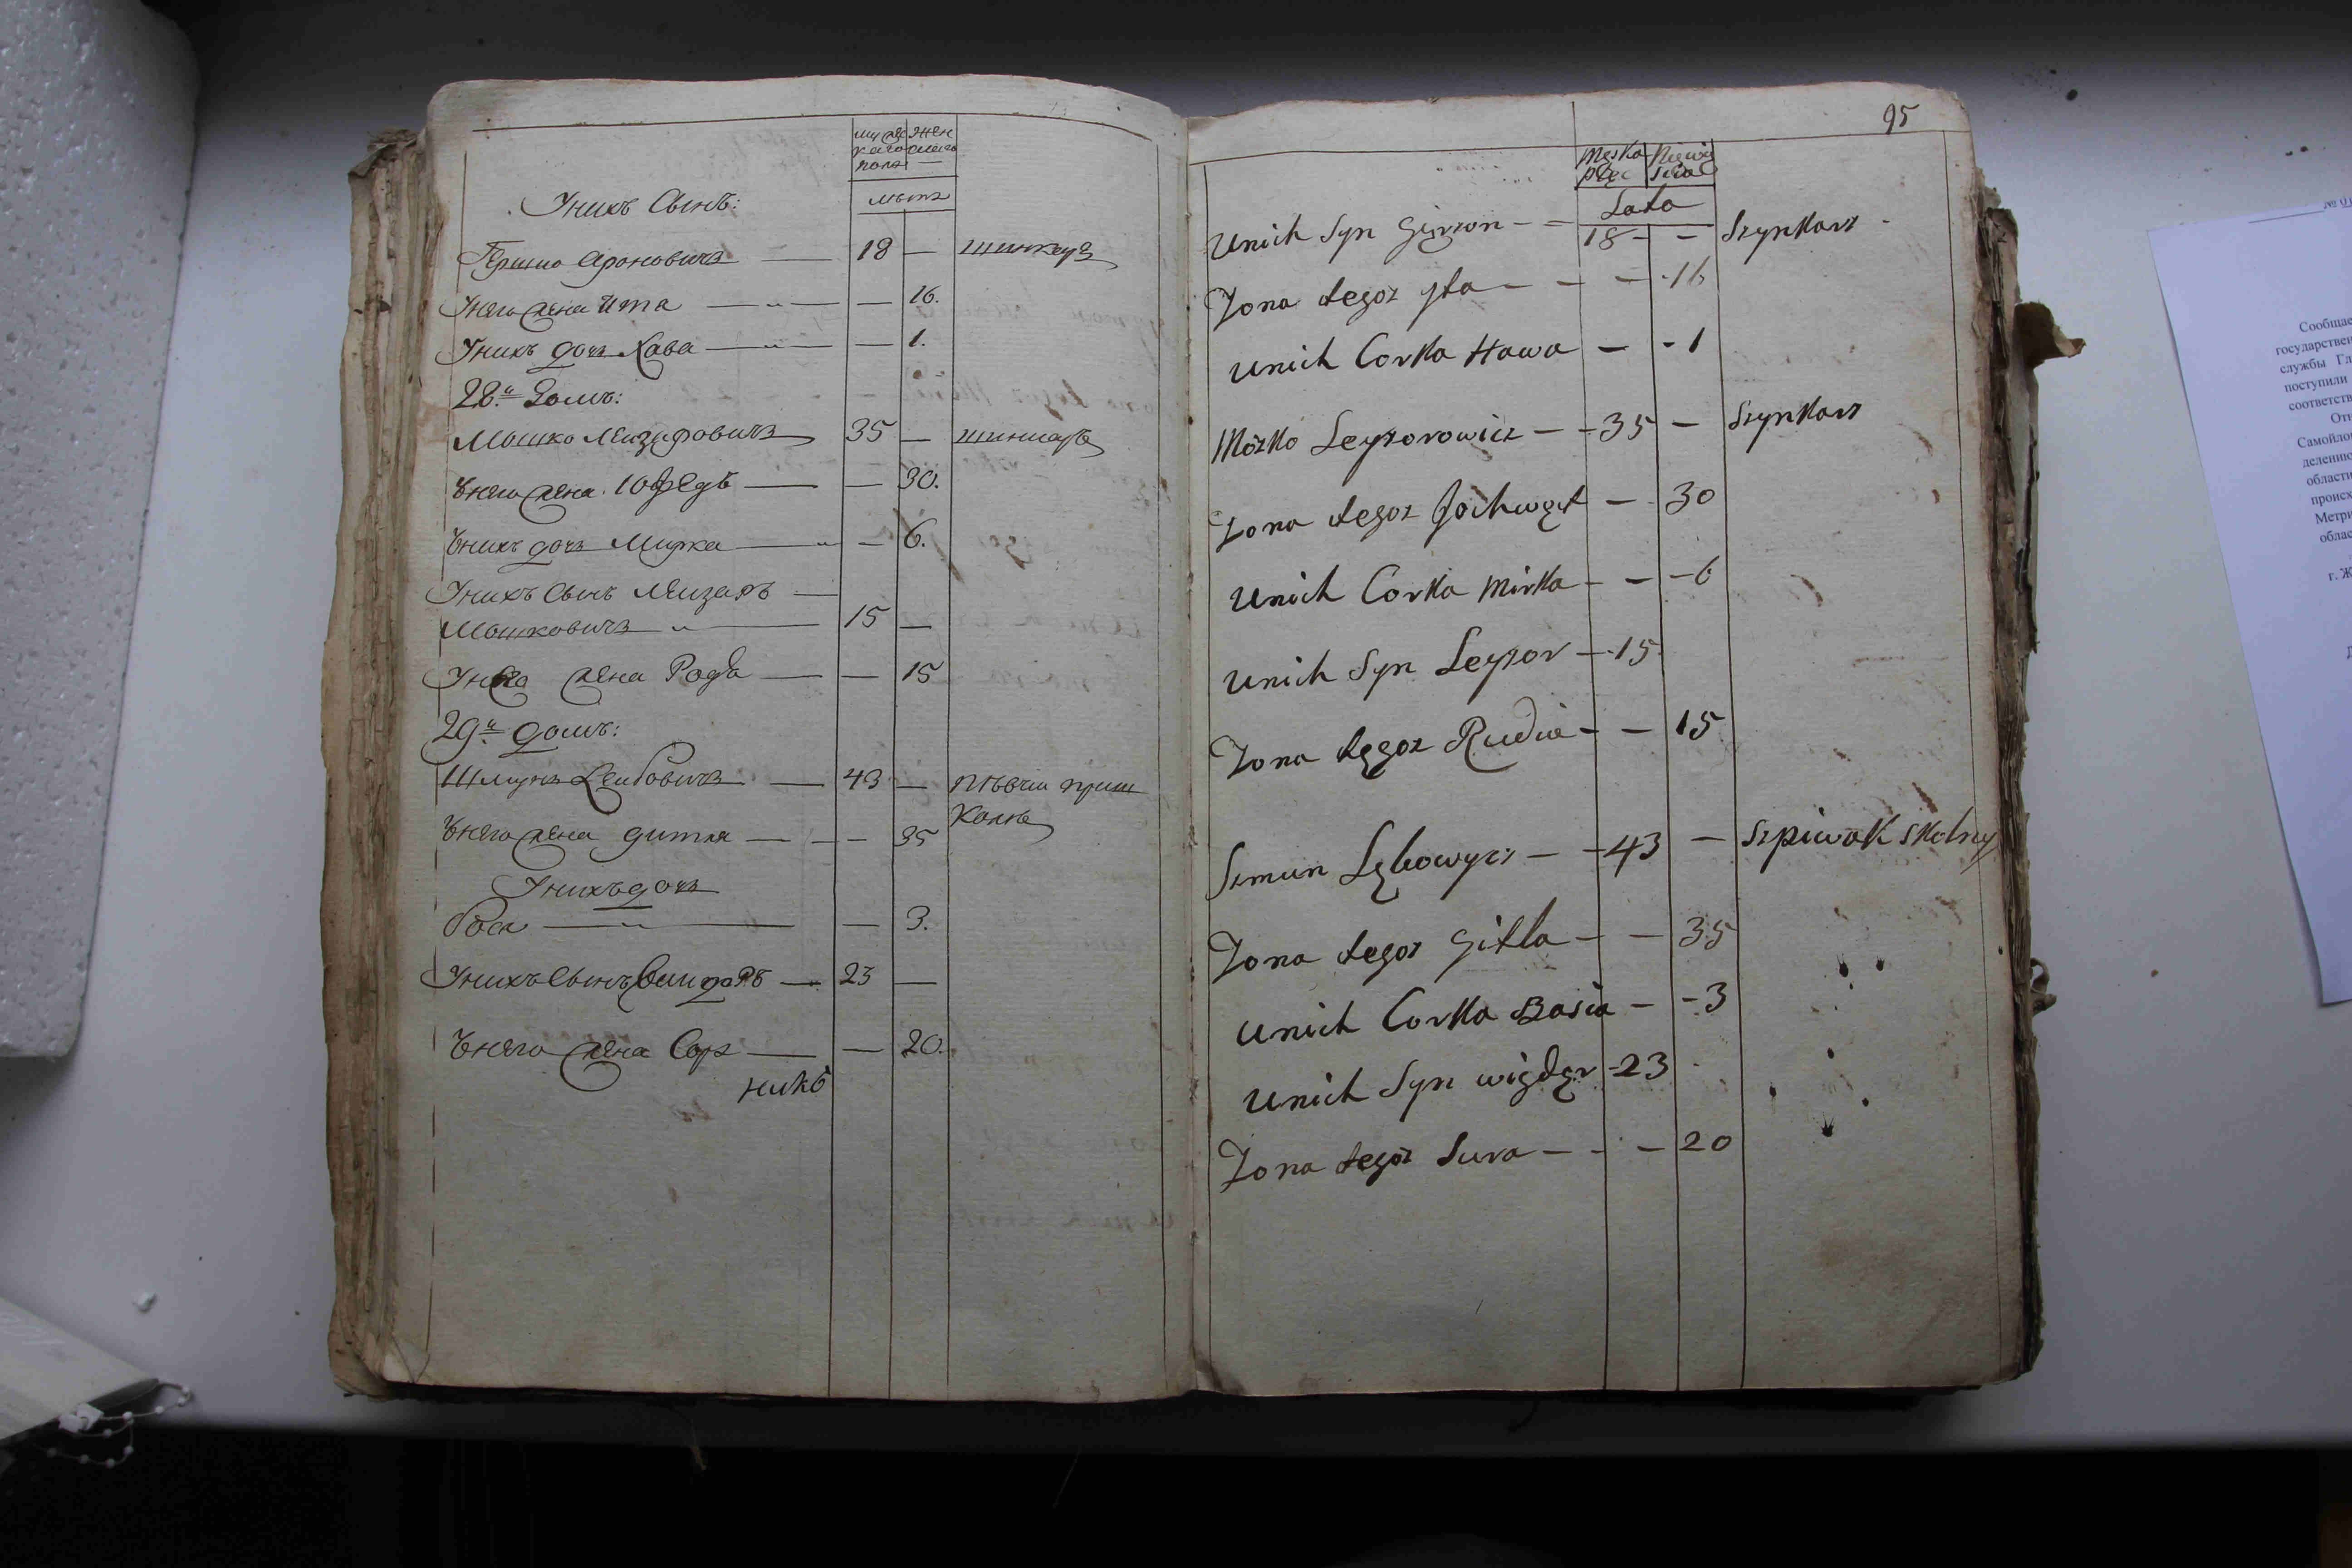 муже жен
каго скаго
полъ —
лѣта
Унихъ Сынъ:
Гершко Ароновичъ — 18 — шинкаръ
Унего жена Ита — — 16.
Унихъ дочь Хава — — 1.
28.й Домъ:
Мошко Лейзеровичъ 35 — шинкаръ
Унего жена — — 30.
Унихъ дочь Мирка — — 6.
Унихъ Сынъ Лейзаръ —
Мошковичъ — 15 —
Унего жена Родя — — 15
29.й домъ:
Лейбовичъ — 43 — пѣвчи приш
Колѣ
Унего жена гитля — — 35
Унихъ дочь
Бося — — 3.
Унихъ Сынъ — 23 —
Унего жена Сура — — 20.
никъ
95
Męska Niewia
płec scia
Lata
Unich Syn Gierszon — 18 — Szynkarz
Zona tegoz Yta — — 16
Unich Corka Hawa — — 1
Moszko Leyzorowicz — 35 — Szynkarz
Zona tegoz Jochwet — 30
Unich Corka Mirka — — 6
Unich Syn Leyzor — 15
Zona tegoz Rudia — — 15
Szmun Leybowycz — 43 — Szpiwak Skolny
Zona tegoz Gitla — — 35
Unich Corka Basia — — 3
Unich Syn Wigder 23
Zona tegoz Sura — — 20
Сообщае
государствен
службы Гл
поступили
соответств
Отг
Самойло
делению
области
проис
Метри
облас
г. Ж